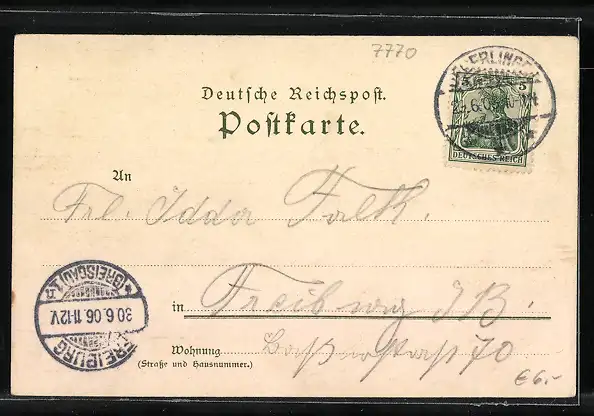 7770
UEBERLINGEN
5 5
DEUTSCHES REICH
Deutsche Reichspost.
Postkarte.
An
Frl. Idda Falk.
FREIBURG
(BREISGAU) 1
30.6.06.11-12V.
in Freiburg I B.
Wohnung 70
(Straße und Hausnummer.)
€6.-